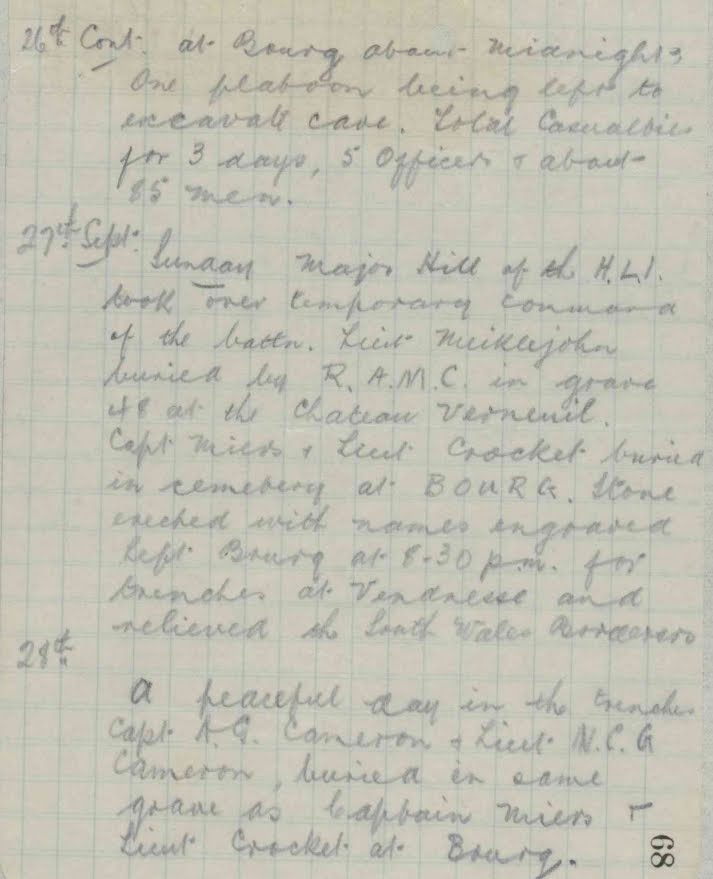 26th Cont. at Bourg about midnight
One platoon being left to
excavate cave. Total Casualties
for 3 days, 5 Officers + about
85 men.
27th Sept.
Sunday Major Hill of the H.L.I.
took over temporary command
of the battn. Lieut Meiklejohn
buried by R.A.M.C. in grave
48 at the Chateau Verneuil.
Capt Miers + Lieut Crocket buried
in cemetery at BOURG. Stone
erected with names engraved
Left Bourg at 8-30 p.m. for
trenches at Vendresse and
relieved the South Wales Borderers
28th
A peaceful day in the trenches
Capt A.G. Cameron + Lieut N.C.G
Cameron, buried in same
grave as Captain Miers +
Lieut Crocket at Bourg.
68